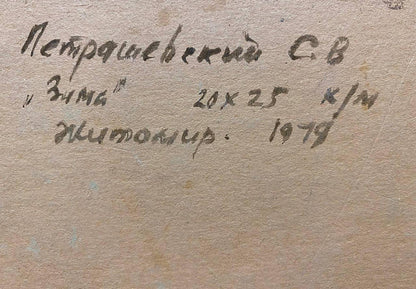 Петрашевский С.В
"Зима" 20x25 к/м
Житомир. 1979